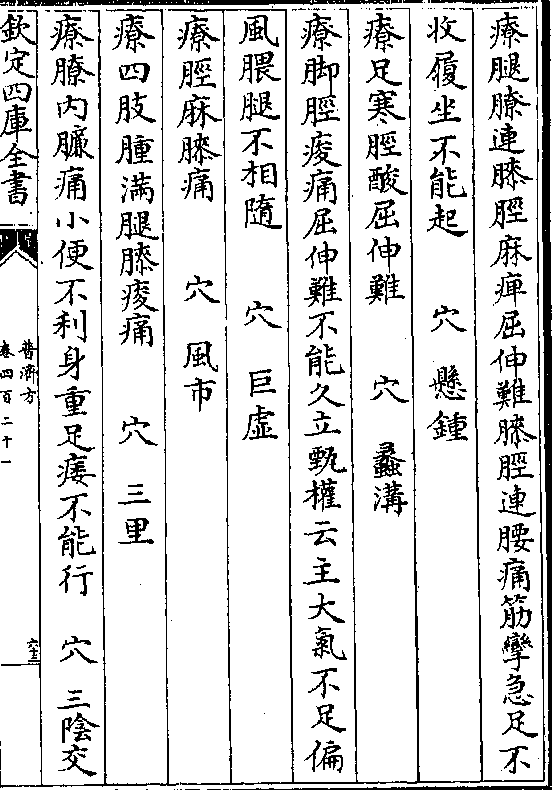 療腿膫連膝脛麻痺屈伸難膝脛連腰痛筋攣急足不
收履坐不能起　穴　懸鍾
療足寒脛酸屈伸難　穴　蠡溝
療脚脛痠痛屈伸難不能久立甄權云主大氣不足偏
風腲腿不相隨　穴　巨虛
療脛麻膝痛　穴　風市
療四肢腫滿腿膝痠痛　穴　三里
療膫內臁痛小便不利身重足痿不能行　穴　三陰交
欽定四庫全書
普濟方
卷四百二十一
六十三